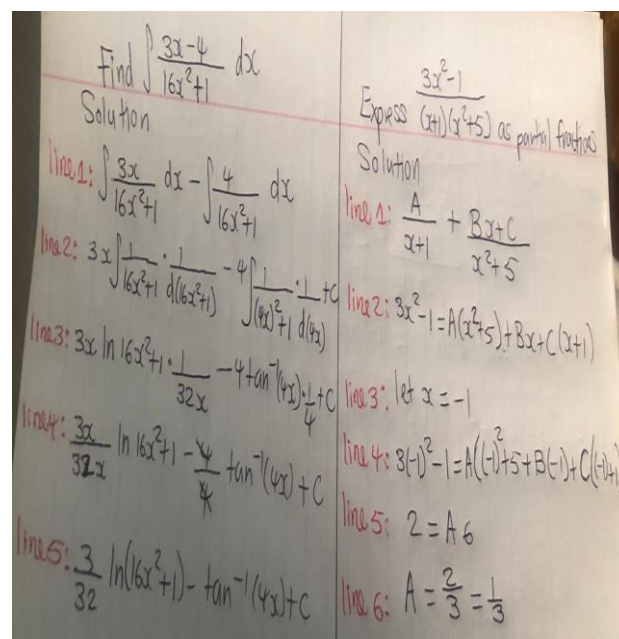 Find ∫ (3x-4)/(16x²+1) dx
Solution
line1: ∫ 3x/(16x²+1) dx - ∫ 4/(16x²+1) dx
line2: 3x ∫ 1/(16x²+1) · 1/d(16x²+1) - 4 ∫ 1/((4x)²+1) · 1/d(4x) +C
line3: 3x ln 16x²+1 · 1/32x - 4 tan⁻¹(4x) · 1/4 + C
line4: 3x/32x ln 16x²+1 - 4/4 tan⁻¹(4x) + C
line5: 3/32 ln(16x²+1) - tan⁻¹(4x) + C
Express (3x²-1)/((x+1)(x²+5)) as partial fractions
Solution
line 1: A/(x+1) + (Bx+C)/(x²+5)
line2: 3x²-1 = A(x²+5) + Bx + C(x+1)
line3: let x = -1
line 4: 3(-1)²-1 = A((-1)²+5 + B(-1) + C((-1)+1)
line5: 2 = A6
line 6: A = 2/3 = 1/3